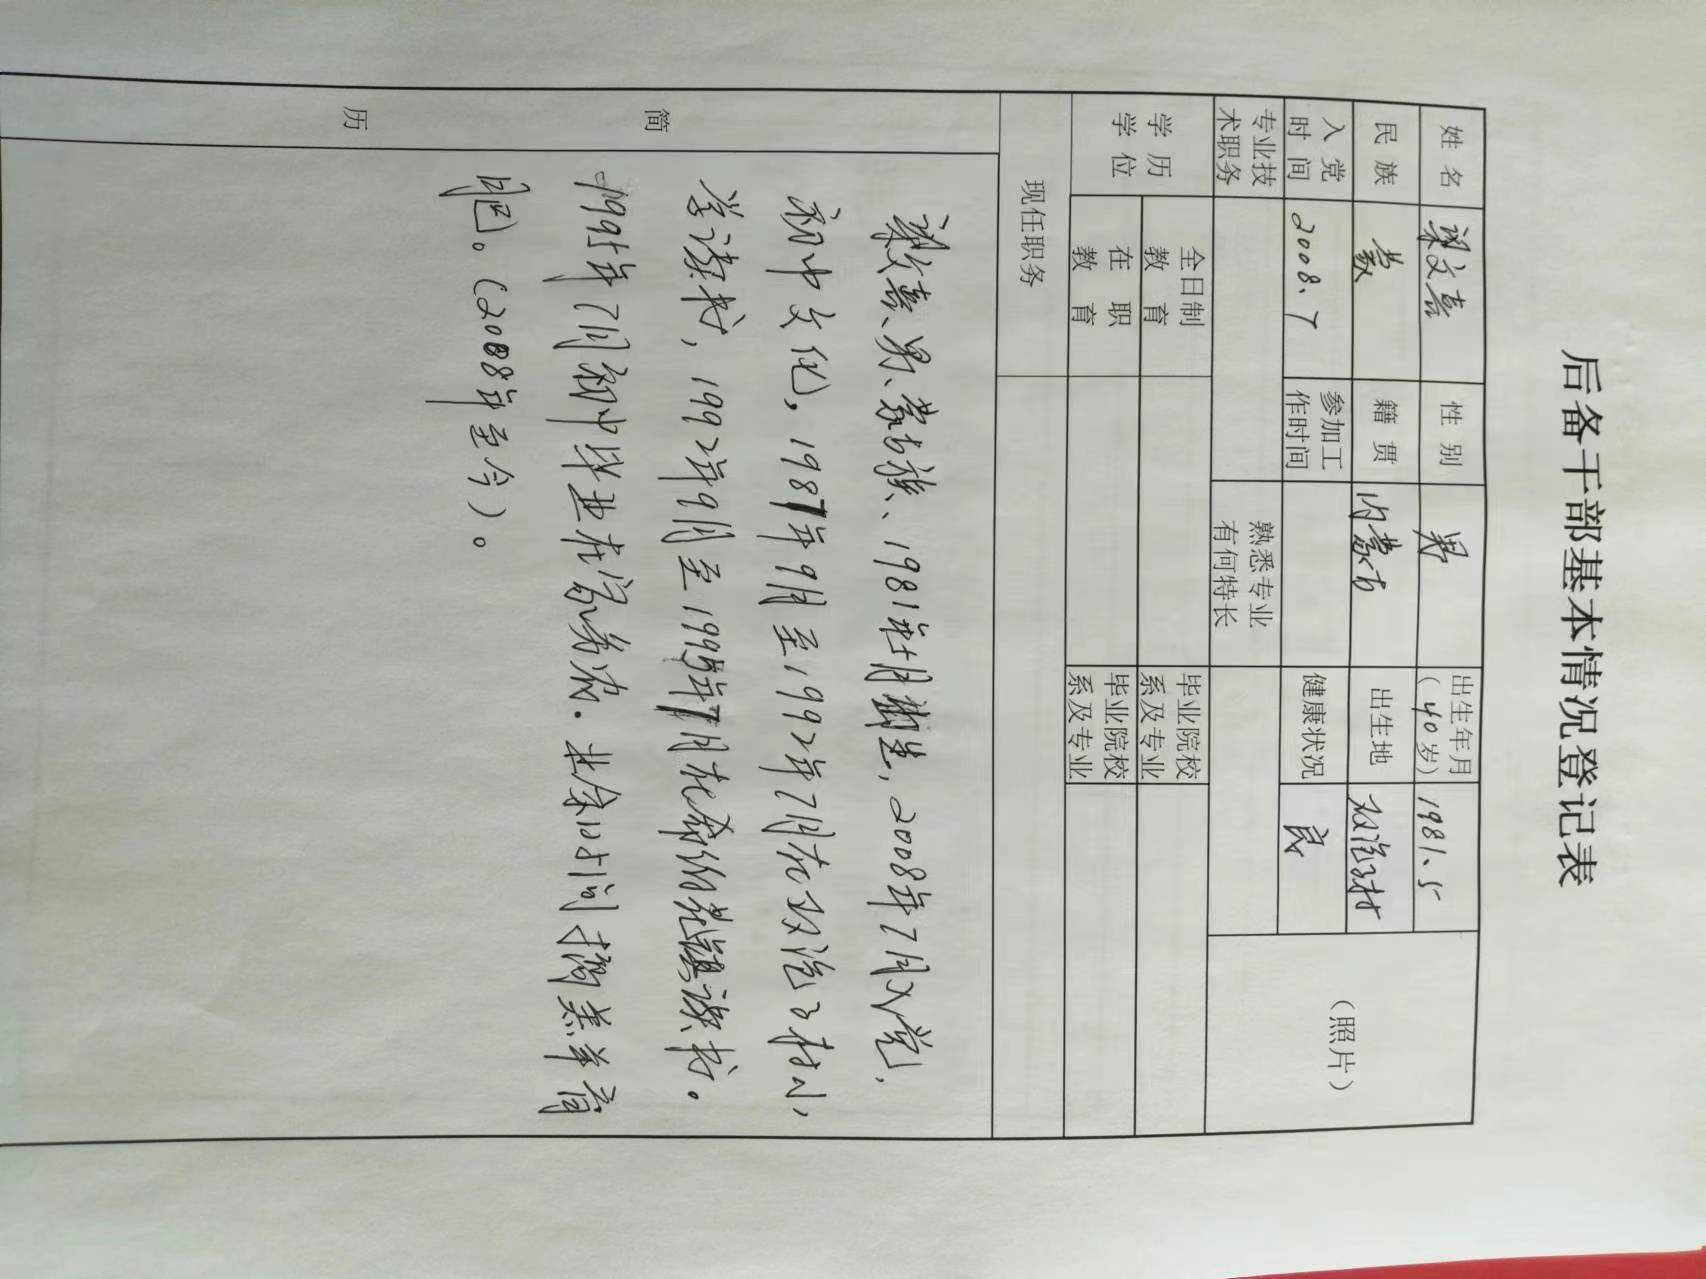 后备干部基本情况登记表
姓名 梁文喜 性别 男 出生年月（40岁） 1981.5 （照片）
民族 蒙 籍贯 内蒙古 出生地 双治村
入党时间 2008、7 参加工作时间 健康状况 良
专业技术职务 熟悉专业有何特长
学历学位 全日制教育 毕业院校系及专业
在职教育 毕业院校系及专业
现任职务
简历
梁文喜、男、蒙古族、1981年5月出生，2008年7月入党，
初中文化，1987年9月至1992年7月在双治村小
学读书，1992年9月至1995年7月在 镇读书。
1995年7月初中毕业在家务农．业余时间搞羔羊育
肥。（2008年至今）。